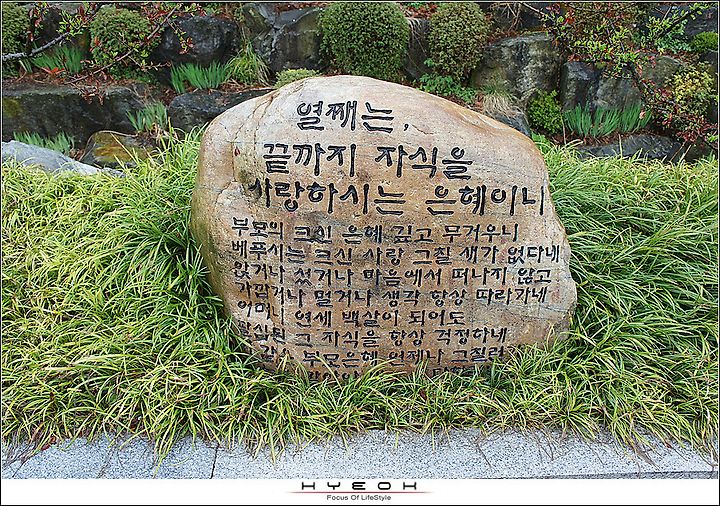 열째는,
끝까지 자식을
사랑하시는 은혜이니
부모의 크신 은혜 깊고 무거우니
베푸시는 크신 사랑 그칠 새가 없다네
앉거나 섰거나 마음에서 떠나지 않고
가깝거나 멀거나 생각 항상 따라가네
어머니 연세 백살이 되어도
팔십된 그 자식을 항상 걱정하네
부모은혜 언제나 그칠런
HYEOK
Focus Of LifeStyle